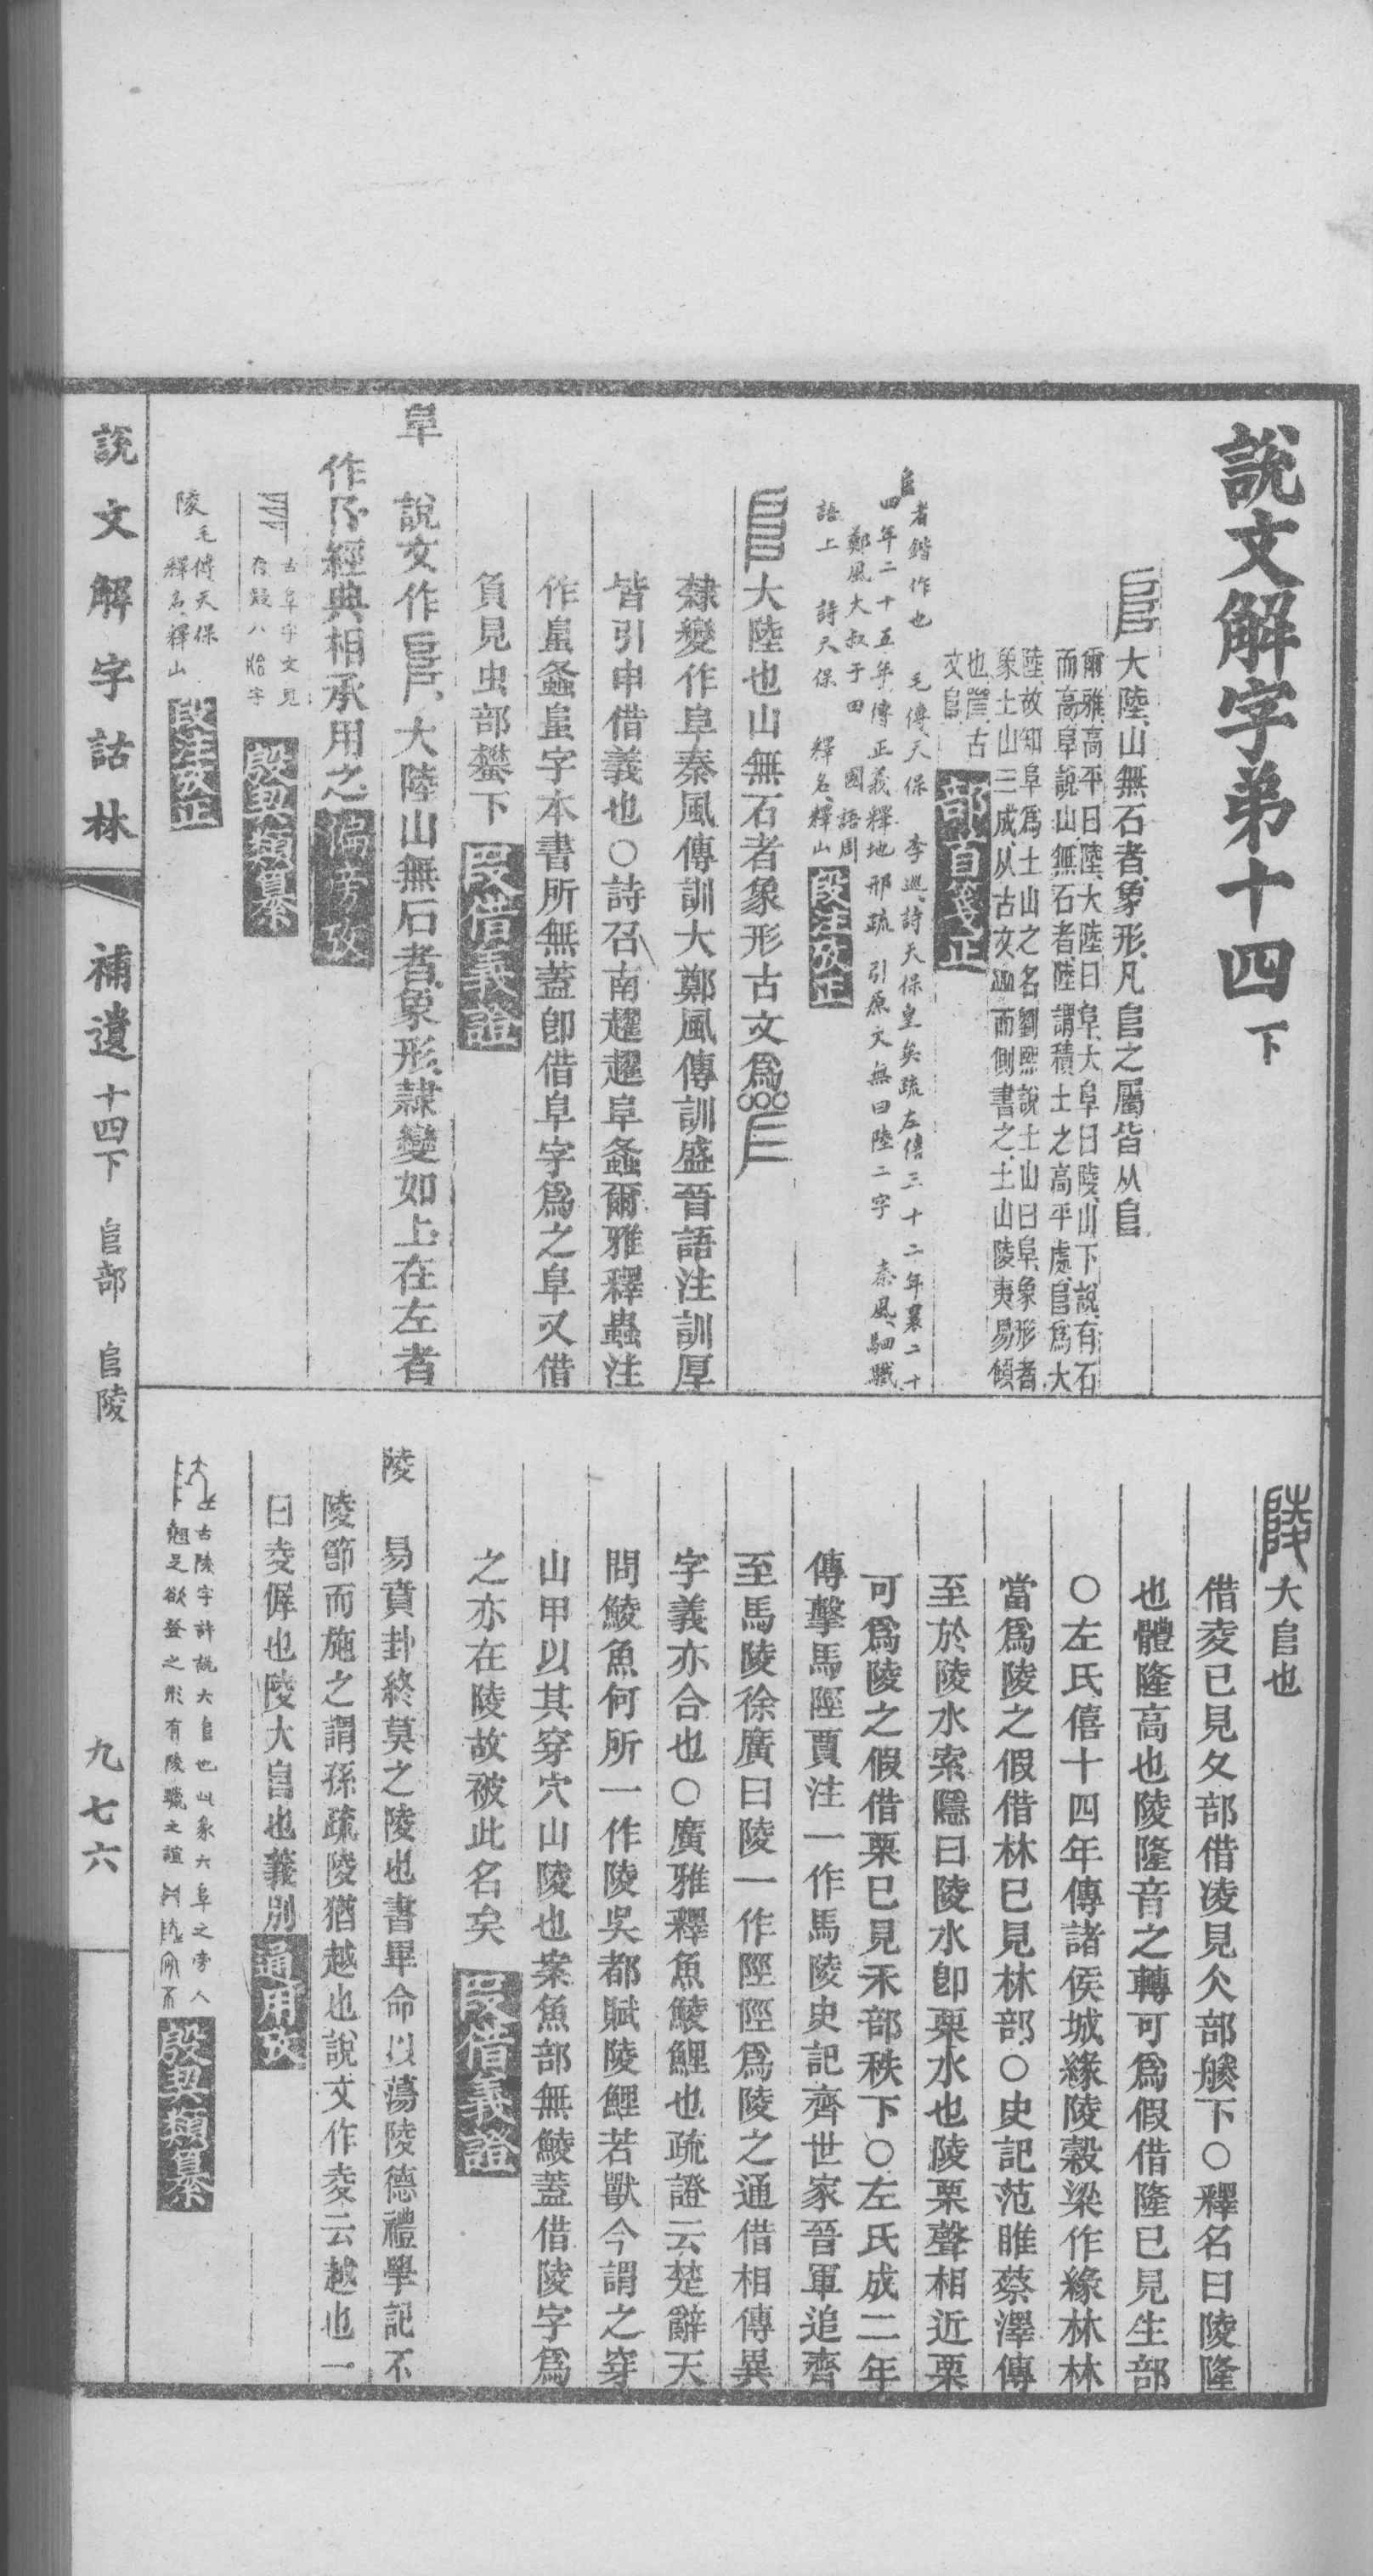 說文解字弟十四下
大陸山無石者象形凡𨸏之屬皆从𨸏
爾雅高平曰陸大陸曰阜大阜曰陵山下說有石
而高阜說山無石者陸謂積土之高平處𨸏爲大
陸故知阜爲土山之名劉熙說土山曰阜象形者
象土山三成从古文而側書之土山陵夷易傾
也古
文𨸏
部首箋正
𨸏者鍇作也 毛傳天保 李巡詩天保皇矣疏左僖三十二年襄二十
四年二十五年傳正義釋地邢疏引原文無曰陸二字 秦風駟驖
鄭風大叔于田 國語周
語上 詩天保 釋名釋山
段注攷正
大陸也山無石者象形古文爲
隸變作阜秦風傳訓大鄭風傳訓盛晉語注訓厚
皆引申借義也○詩召南趯趯阜螽爾雅釋蟲注
作蛗螽蛗字本書所無蓋卽借阜字爲之阜又借
負見虫部蠜下
叚借義證
阜 說文作𨸏大陸山無石者象形隸變如上在左者
作阝經典相承用之
偏旁攷
古阜字文見
殷契類纂
陵 毛傳天保
釋名釋山
段注攷正
陵 大𨸏也
借夌已見夂部借凌見仌部䑞下○釋名曰陵隆
也體隆高也陵隆音之轉可爲假借隆已見生部
○左氏僖十四年傳諸侯城緣陵穀梁作緣林林
當爲陵之假借林已見林部○史記范睢蔡澤傳
至於陵水索隱曰陵水卽栗水也陵栗聲相近栗
可爲陵之假借栗已見禾部秩下○左氏成二年
傳擊馬陘賈注一作馬陵史記齊世家晉軍追齊
至馬陵徐廣曰陵一作陘陘爲陵之通借相傳異
字義亦合也○廣雅釋魚鯪鯉也疏證云楚辭天
問鯪魚何所一作陵吳都賦陵鯉若獸今謂之穿
山甲以其穿穴山陵也案魚部無鯪蓋借陵字爲
之亦在陵故被此名矣
叚借義證
陵 易賁卦終莫之陵也書畢命以蕩陵德禮學記不
陵節而施之謂孫疏陵猶越也說文作夌云越也一
曰夌徲也陵大𨸏也義別
通用攷
古陵字許說大𨸏也此象大阜之旁人
翹足欲登之形有陵躐之誼
殷契類纂
說文解字詁林 補遺 十四下 𨸏部 𨸏陵 九七六